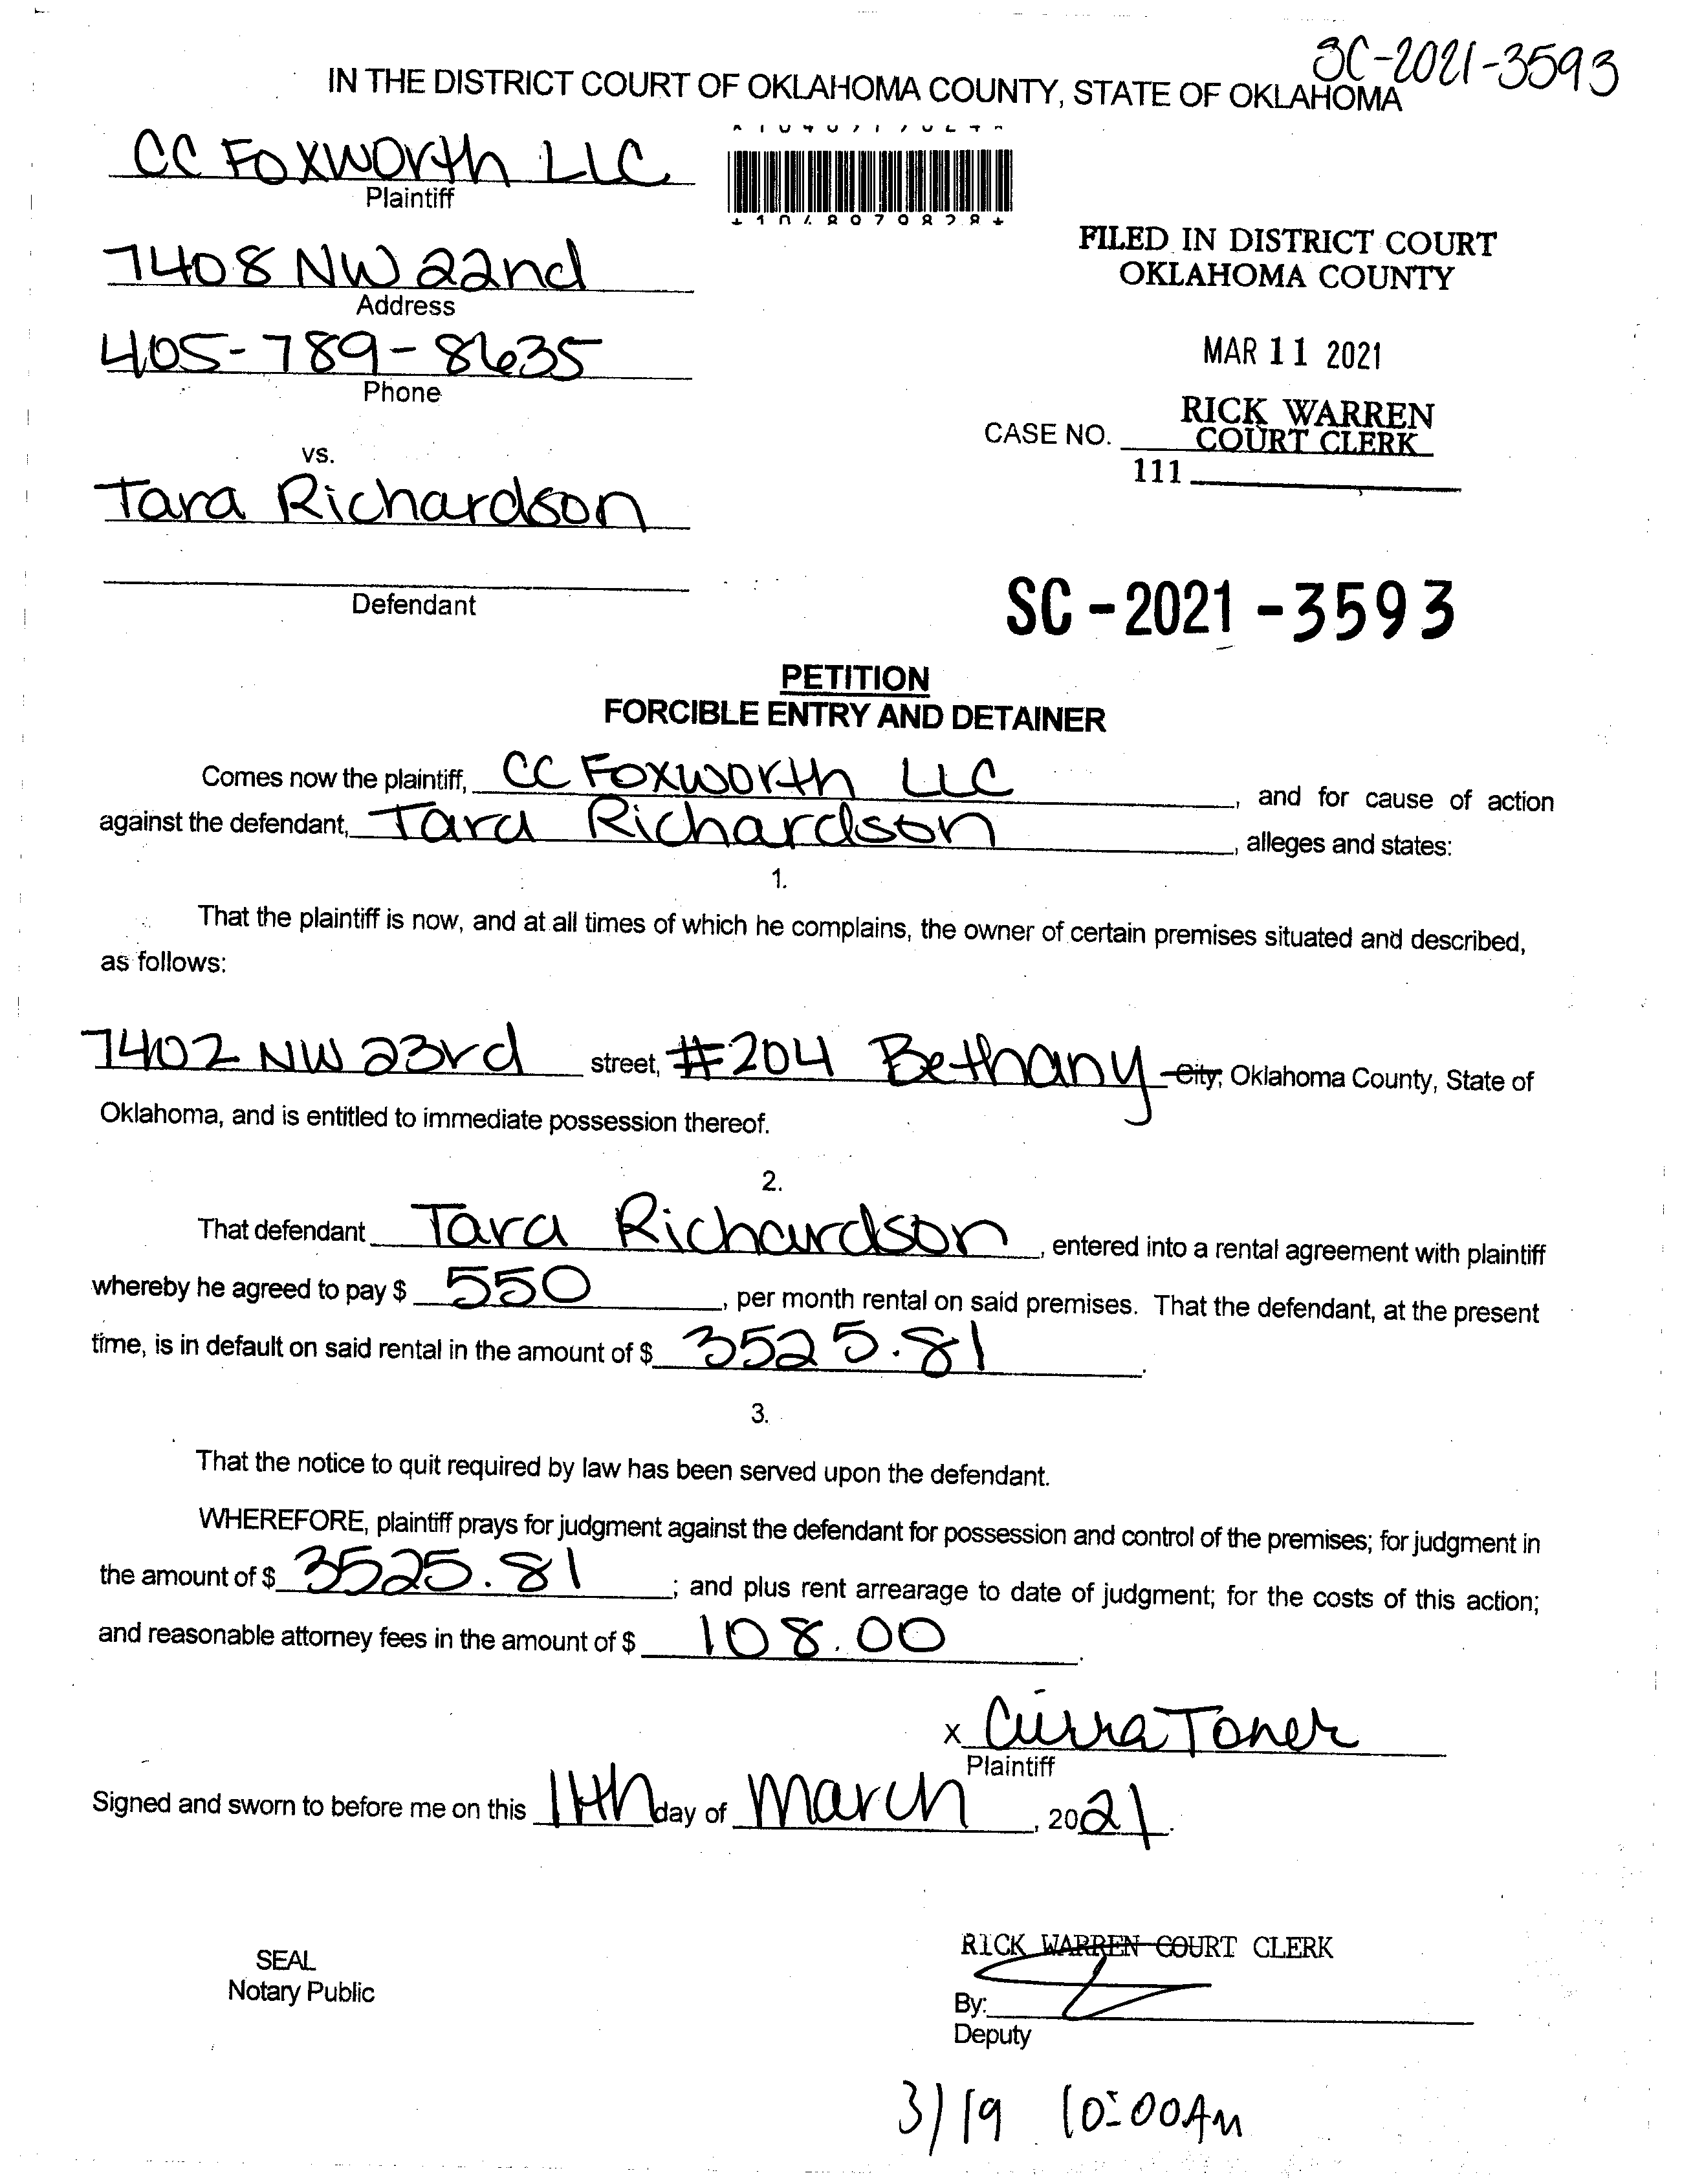 SC-2021-3593
IN THE DISTRICT COURT OF OKLAHOMA COUNTY, STATE OF OKLAHOMA
CC Foxworth LLC
Plaintiff
7408 NW 22nd
Address
FILED IN DISTRICT COURT
OKLAHOMA COUNTY
405-789-8635
Phone
MAR 11 2021
RICK WARREN
CASE NO. COURT CLERK
vs.
111
Tara Richardson
Defendant
SC-2021-3593
PETITION
FORCIBLE ENTRY AND DETAINER
Comes now the plaintiff, CC Foxworth LLC, and for cause of action
against the defendant, Tara Richardson, alleges and states:
1.
That the plaintiff is now, and at all times of which he complains, the owner of certain premises situated and described,
as follows:
7402 NW 23rd street, #204 Bethany City, Oklahoma County, State of
Oklahoma, and is entitled to immediate possession thereof.
2.
That defendant Tara Richardson, entered into a rental agreement with plaintiff
whereby he agreed to pay $ 550, per month rental on said premises. That the defendant, at the present
time, is in default on said rental in the amount of $ 3525.81.
3.
That the notice to quit required by law has been served upon the defendant.
WHEREFORE, plaintiff prays for judgment against the defendant for possession and control of the premises; for judgment in
the amount of $ 3525.81; and plus rent arrearage to date of judgment; for the costs of this action;
and reasonable attorney fees in the amount of $ 108.00.
x Cirra Toner
Plaintiff
Signed and sworn to before me on this 11th day of March, 2021.
RICK WARREN COURT CLERK
SEAL
Notary Public
By:
Deputy
3/19 10:00AM